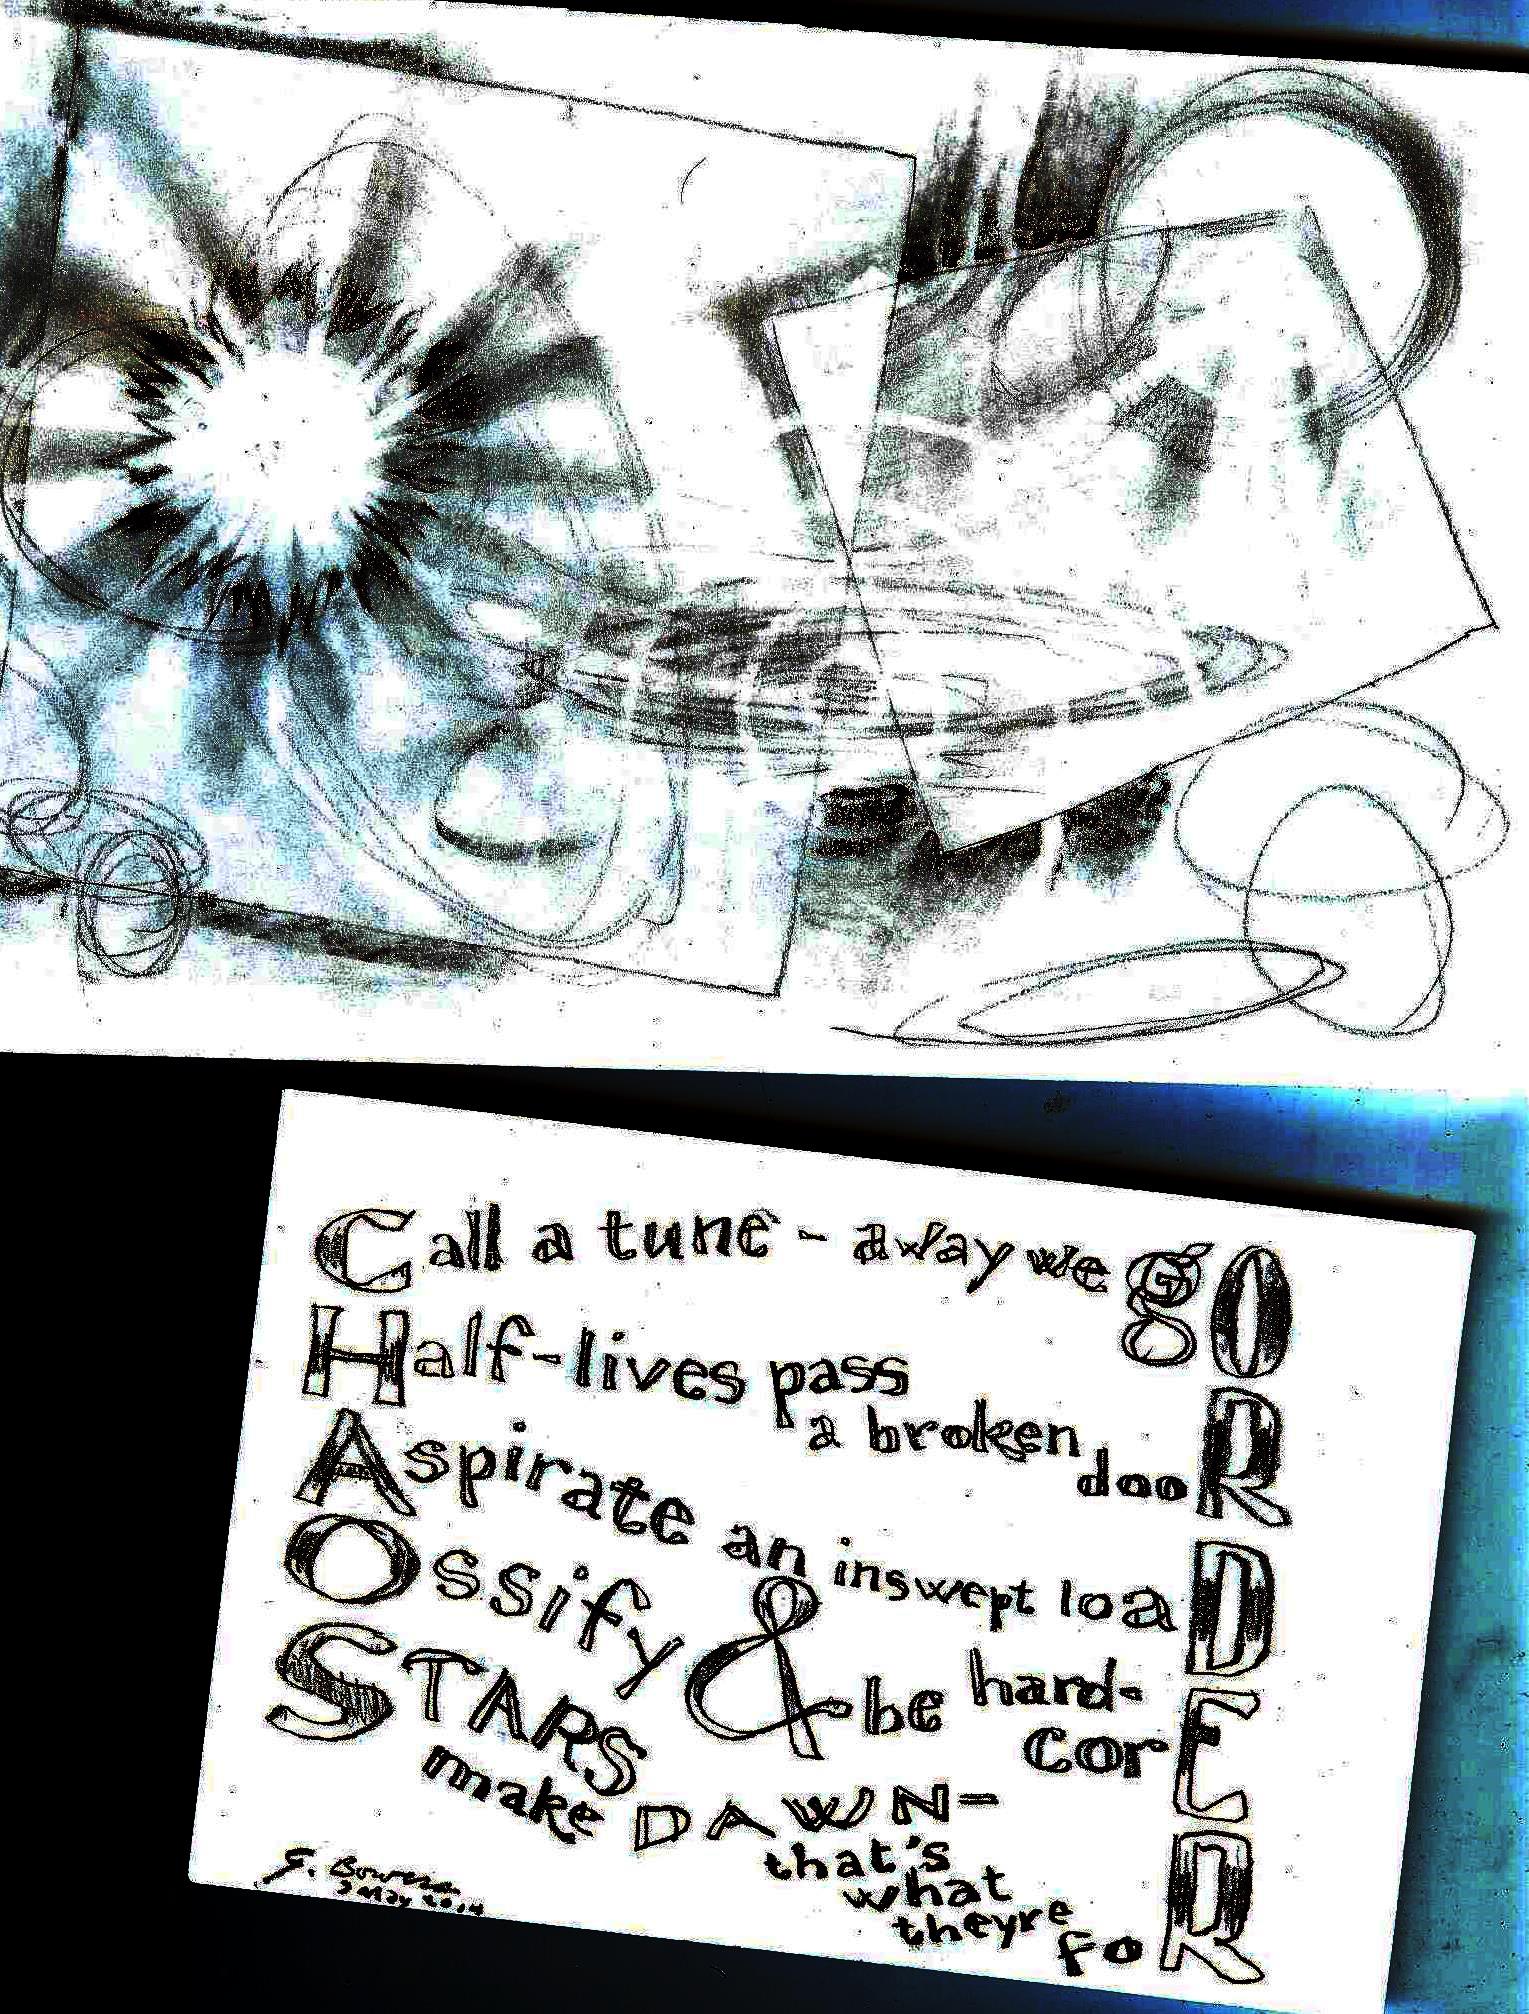 Call a tune - away we gO
Half-lives pass
a broken
dooR
Aspirate an inswept loaD
Ossify & be hard-
corE
STARS
make DAWN-
that's
what
they're
foR
G. Bowers
3 May 2014